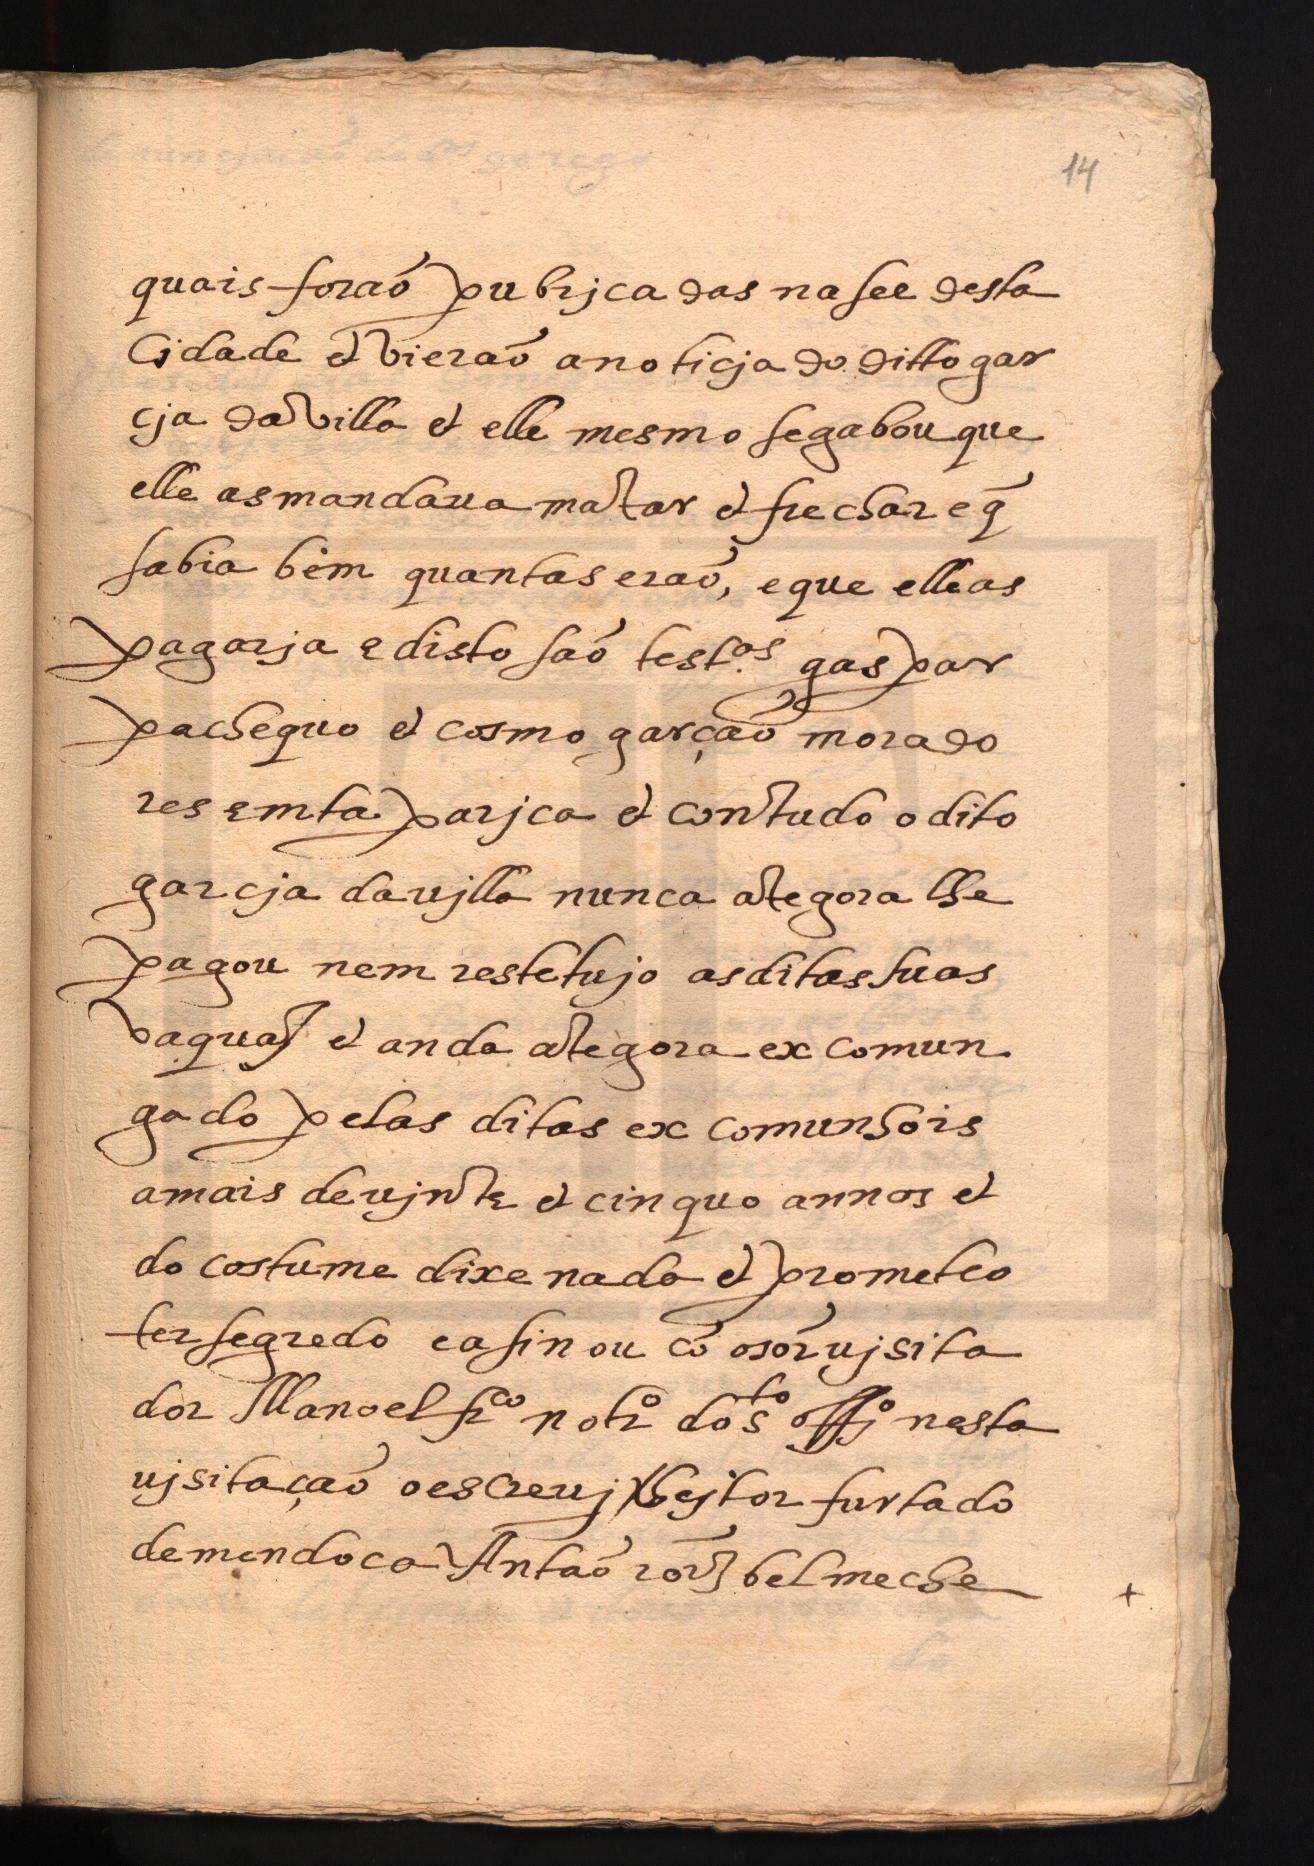 14
quais forão pubrjcadas na see desta
Cjdade et vierão a noticja do ditto gar
cja da villa et elle mesmo se gabou que
elle as mandaua matar et frechar e q̃
sabia bem quantas erão, e que elle as
pagarja e disto são test.as gaspar
pachequo et cosmo garção morado
res em taparjca et con tudo o dito
garcja da ujlla nunca ategora lhe
pagou nem restetujo as ditas suas
vaquas et anda ategora excomun
gado pelas ditas excomunhois
a mais de ujnte et cinquo annos et
do costume dixe nada et prometeo
ter segredo e asinou cõ o sõr ujsita
dor Manoel frco notro do sto offjo nesta
ujsitação o escreuj hejtor furtado
de mendoca Antão roĩz belmeche
+